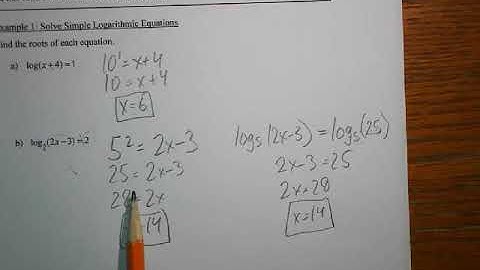 Example 1: Solve Simple Logarithmic Equations
Find the roots of each equation.
a) log(x+4)=1
10¹=x+4
10=x+4
x=6
b) log₅(2x-3)=2
5²=2x-3
25=2x-3
28=2x
14
log₅(2x-3)=log₅(25)
2x-3=25
2x=28
x=14